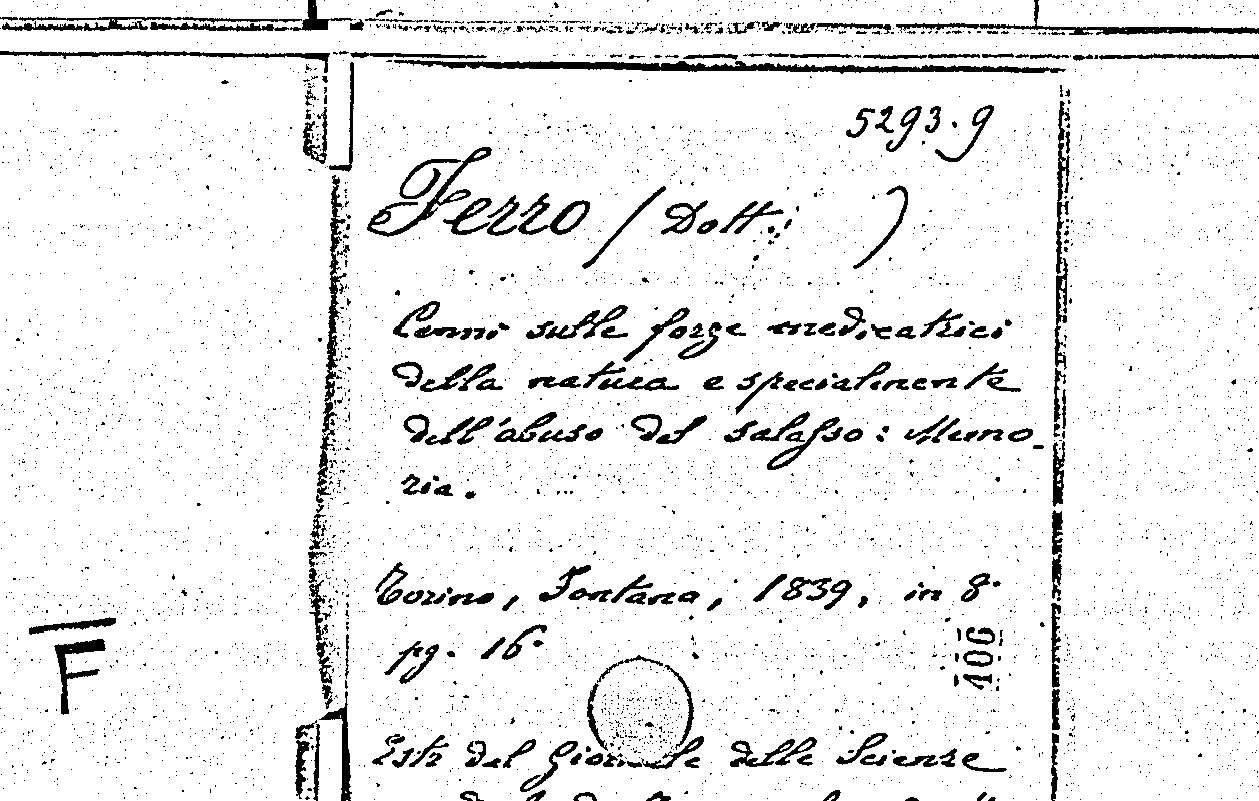 5293.9
Ferro (Dott.: )
Cenni sulle forze medicatrici
della natura e specialmente
dell'abuso del salasso: Memo-
ria.
Torino, Fontana, 1839, in 8°
pg. 16.
406
F
Estr del Giornale delle Scienze